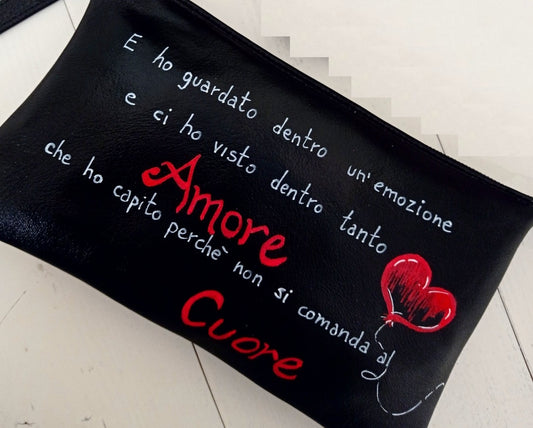 E ho guardato dentro un'emozione
e ci ho visto dentro tanto
Amore
che ho capito perchè non si comanda al
Cuore